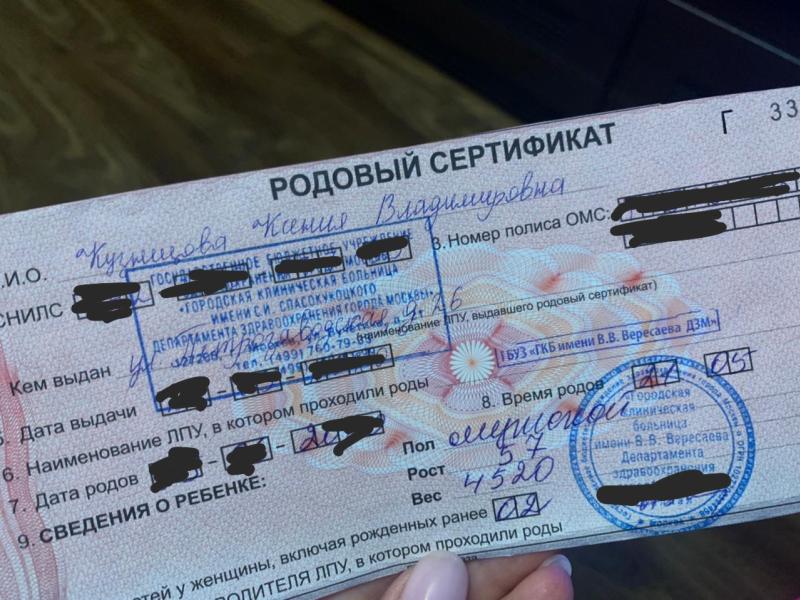 Г 33
РОДОВЫЙ СЕРТИФИКАТ
.И.О. Кузнецова Ксения Владимировна
СНИЛС
3. Номер полиса ОМС:
ГОСУДАРСТВЕННОЕ БЮДЖЕТНОЕ УЧРЕЖДЕНИЕ
«ГОРОДСКАЯ КЛИНИЧЕСКАЯ БОЛЬНИЦА
ИМЕНИ С.И. СПАСОКУКОЦКОГО
ДЕПАРТАМЕНТА ЗДРАВООХРАНЕНИЯ ГОРОДА МОСКВЫ»
тел. (499) 760-79-
Кем выдан
(наименование ЛПУ, выдавшего родовый сертификат)
5. Дата выдачи
ГБУЗ «ГКБ имени В.В. Вересаева ДЗМ»
6. Наименование ЛПУ, в котором проходили роды
7. Дата родов
8. Время родов 21 05
9. СВЕДЕНИЯ О РЕБЕНКЕ:
Пол мужской
Рост 57
Вес 4520
Городская
клиническая
больница
имени В.В. Вересаева
Департамента
здравоохранения
етей у женщины, включая рожденных ранее 02
ВОДИТЕЛЯ ЛПУ, в котором проходили роды